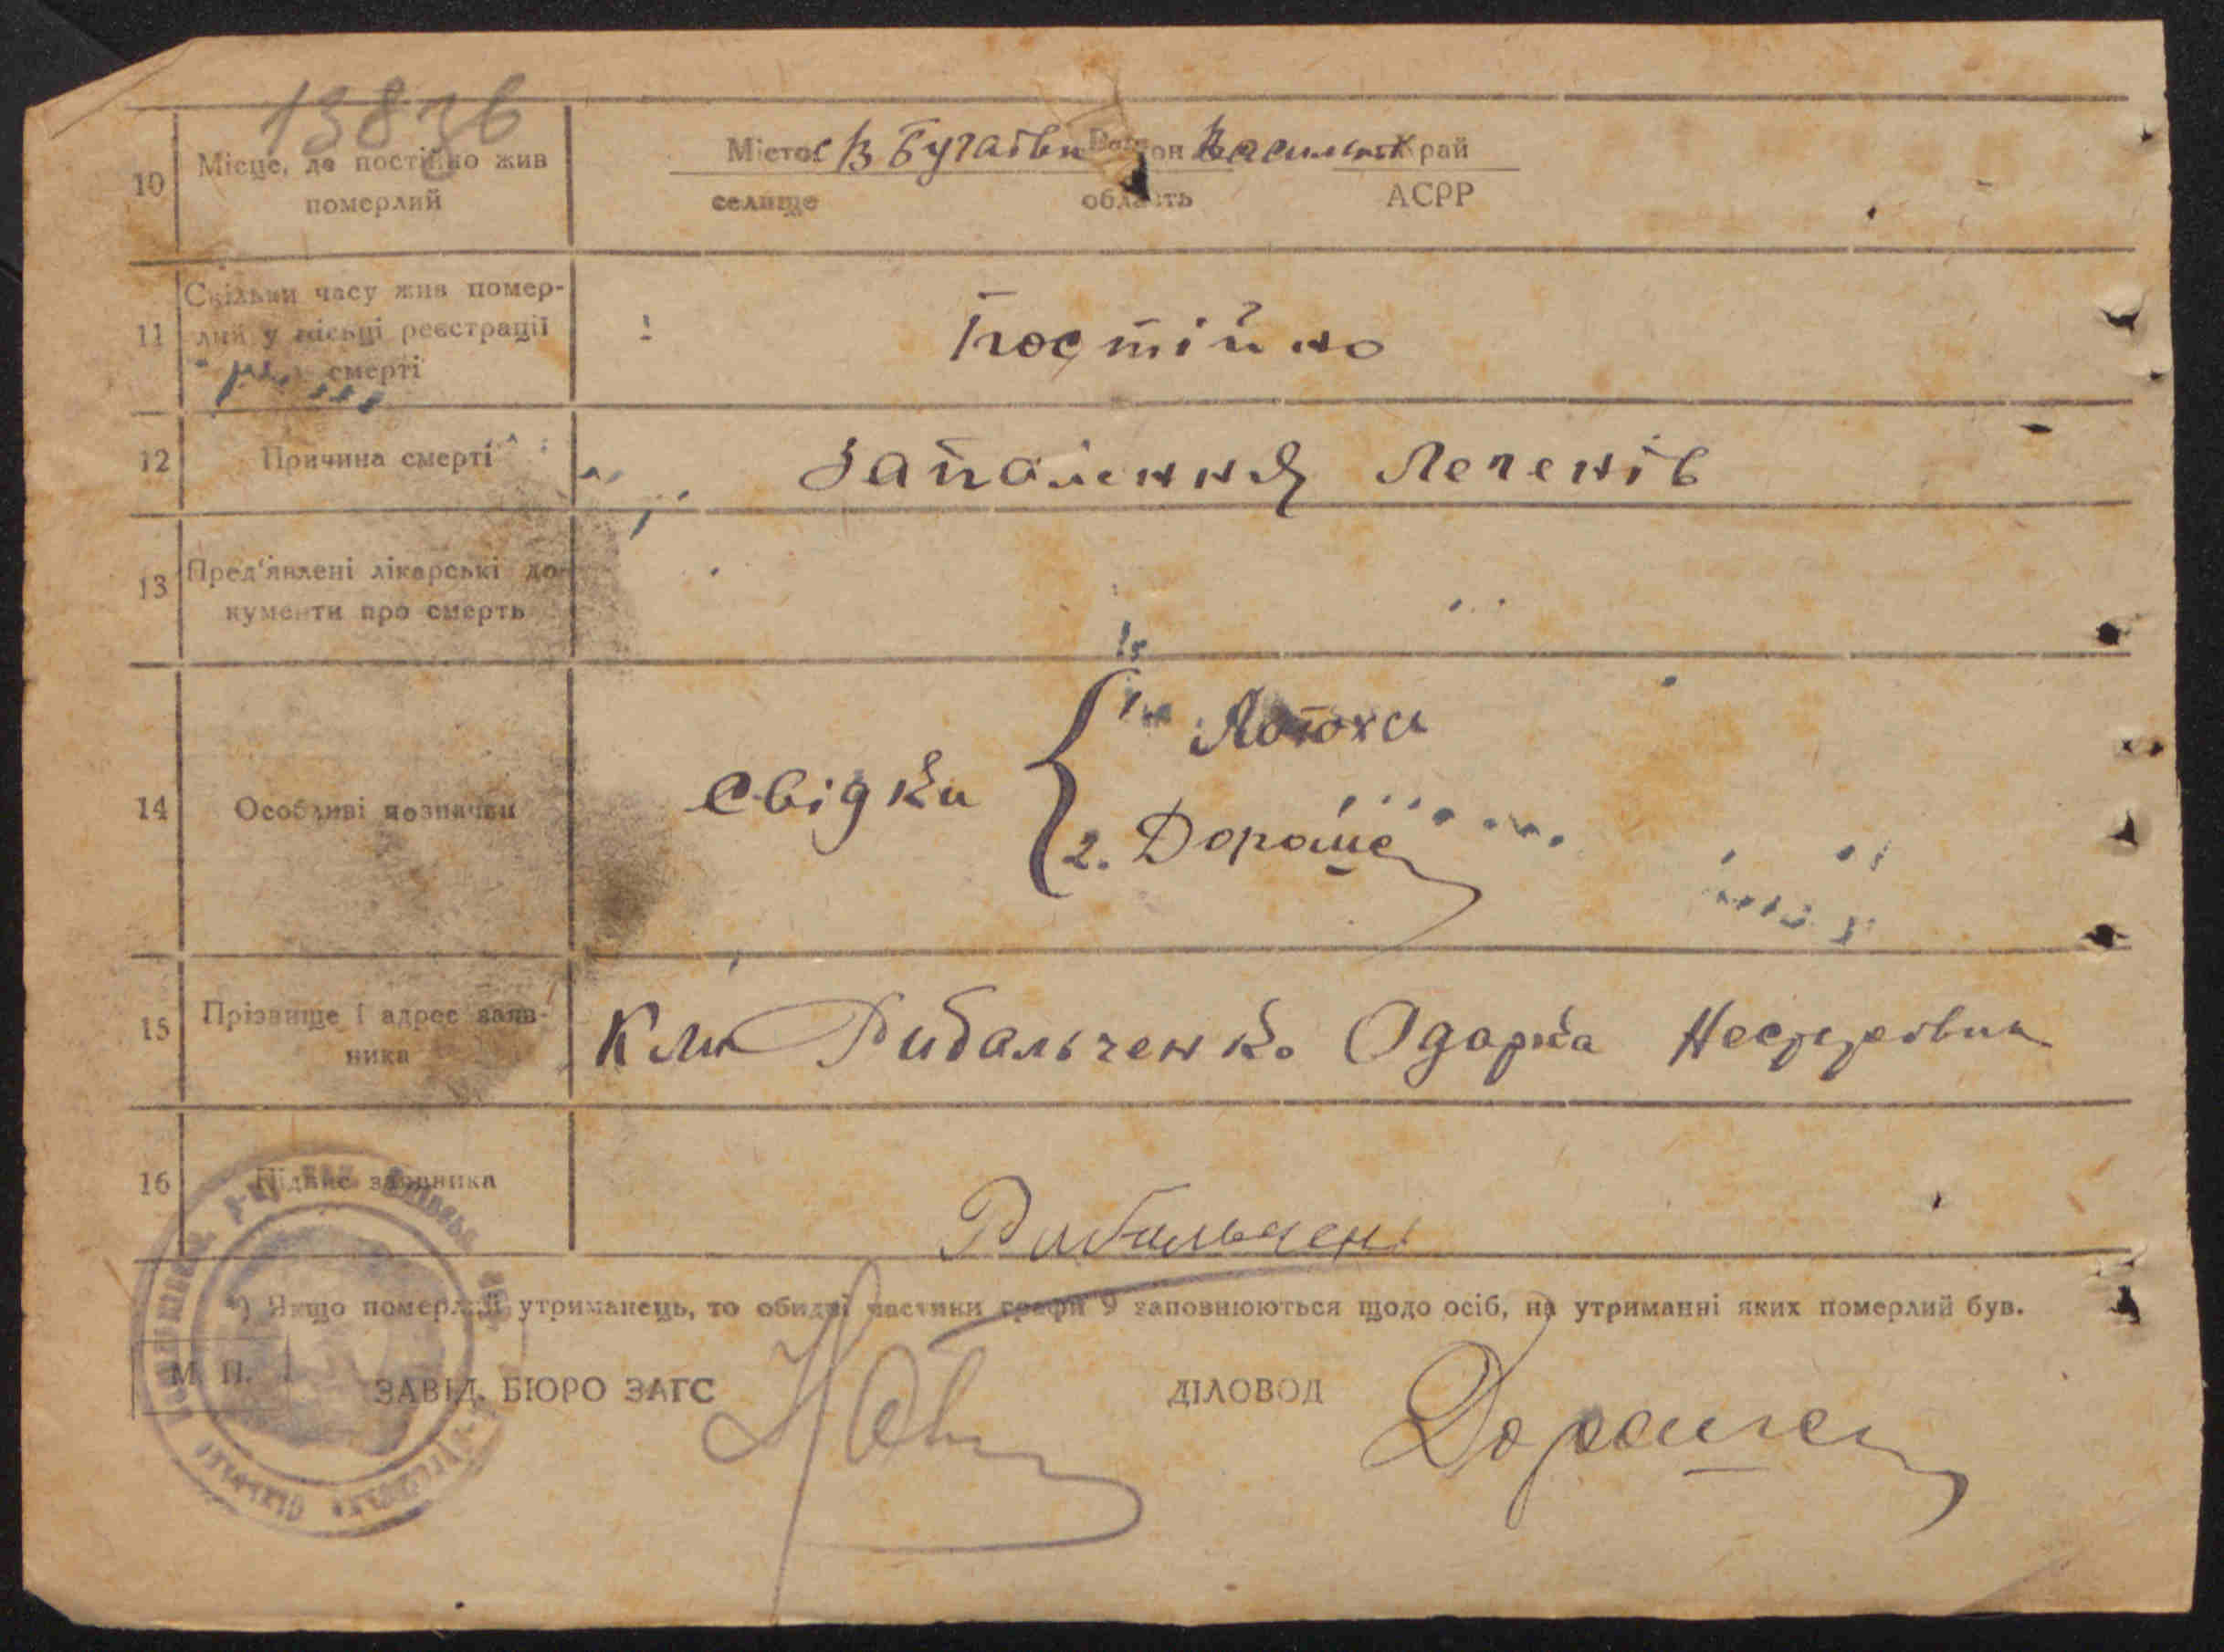 13836
10 Місце, де постійно жив
померлий
Місто с В Бугаївка Район Васильк Край
селище область АСРР
11 Скільки часу жив помер-
лий у місьці реєстрації
смерті
Постійно
12 Причина смерті
Запалення Легенів
13 Пред'явлені лікарські до-
кументи про смерть
14 Особливі позначки
Свідки
2. Дораше
15 Прізвище і адрес заяв-
ника
Рибальченко Одарка Нестерівна
16 Підпис заявника
Рибальчен
*) Якщо померлий утриманець, то обидві частини графи 9 заповнюються щодо осіб, на утриманні яких померлий був.
М. П.
ЗАВІД. БЮРО ЗАГС ДІЛОВОД Дораше